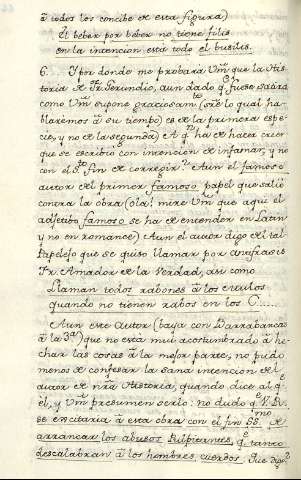 à todos los concibe de esta figura)
El beber por beber no tiene filis
en la intencion esta todo el busilis.
6. ... Y por donde me probará Vm. que la His-
toria de Fr. Gerundio, aun dado qe fuese satira
como Vm. supone graciosamte (sobre lo qual ha-
blaremos à su tiempo) es de la primera espe-
cie, y no de la segunda? A q.n ha de hacer creer
que se escribio con intencion de infamar, y no
con el sto fin de corregir? Aun el famoso
autor del primer famoso papel que salió
contra la obra (ola! mire Vm. que aqui el
adjetibo famoso se ha de entender en Latin
y no en romance) Aun el autor digo del tal
Papelejo que se quiso llamar por antifrasis
Fr. Amador de la Verdad, asi como
Llaman todos rabones à los
quando no tienen rabos en los C.....
Aun este Autor (baya con Barrabas
à la 3a) que no està mui acostumbrado à he-
char las cosas à la mejor parte, no pudo
menos de confesar la sana intencion del
autor de nra Historia, quando dice al qe
el, y Vm. presumen serlo: no dudo qe V. R.
se excitaria à esta obra con el fin SSmo de
arrancar los abusos Pulpitantes, qe tanto
descalabran à los hombres cuerdos. Que digo?